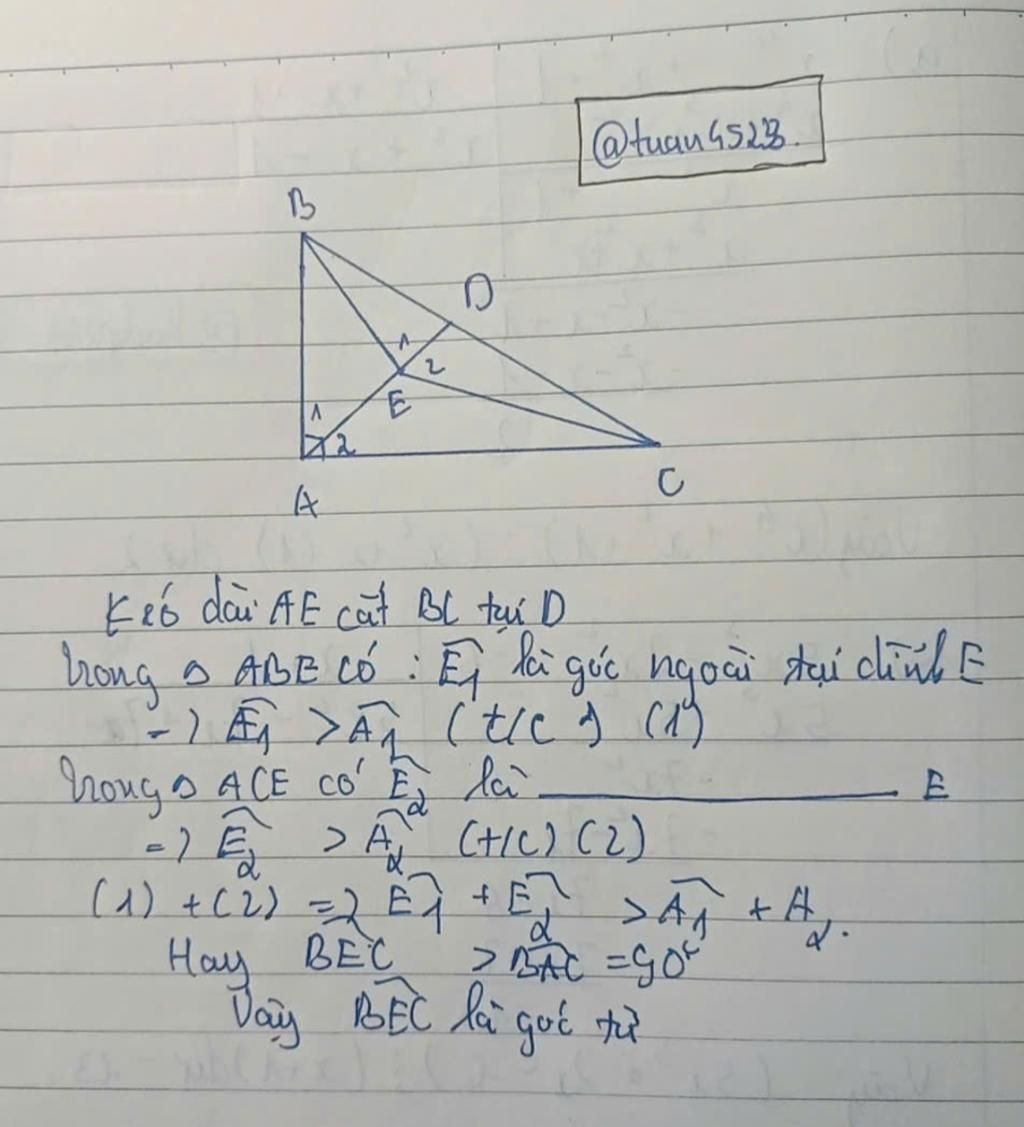 @tuan4528.
B
D
1
2
E
1
2
A
C
Kéo dài AE cắt BC tại D
Trong Δ ABE có : Ê1 là góc ngoài tại đỉnh E
=> Ê1 > Â1 (t/c) (1)
Trong Δ ACE có Ê2 là ———— E
=> Ê2 > Â2 (t/c) (2)
(1) + (2) => Ê1 + Ê2 > Â1 + A2.
Hay BEC > BAC = 90°
Vậy BEC là góc tù